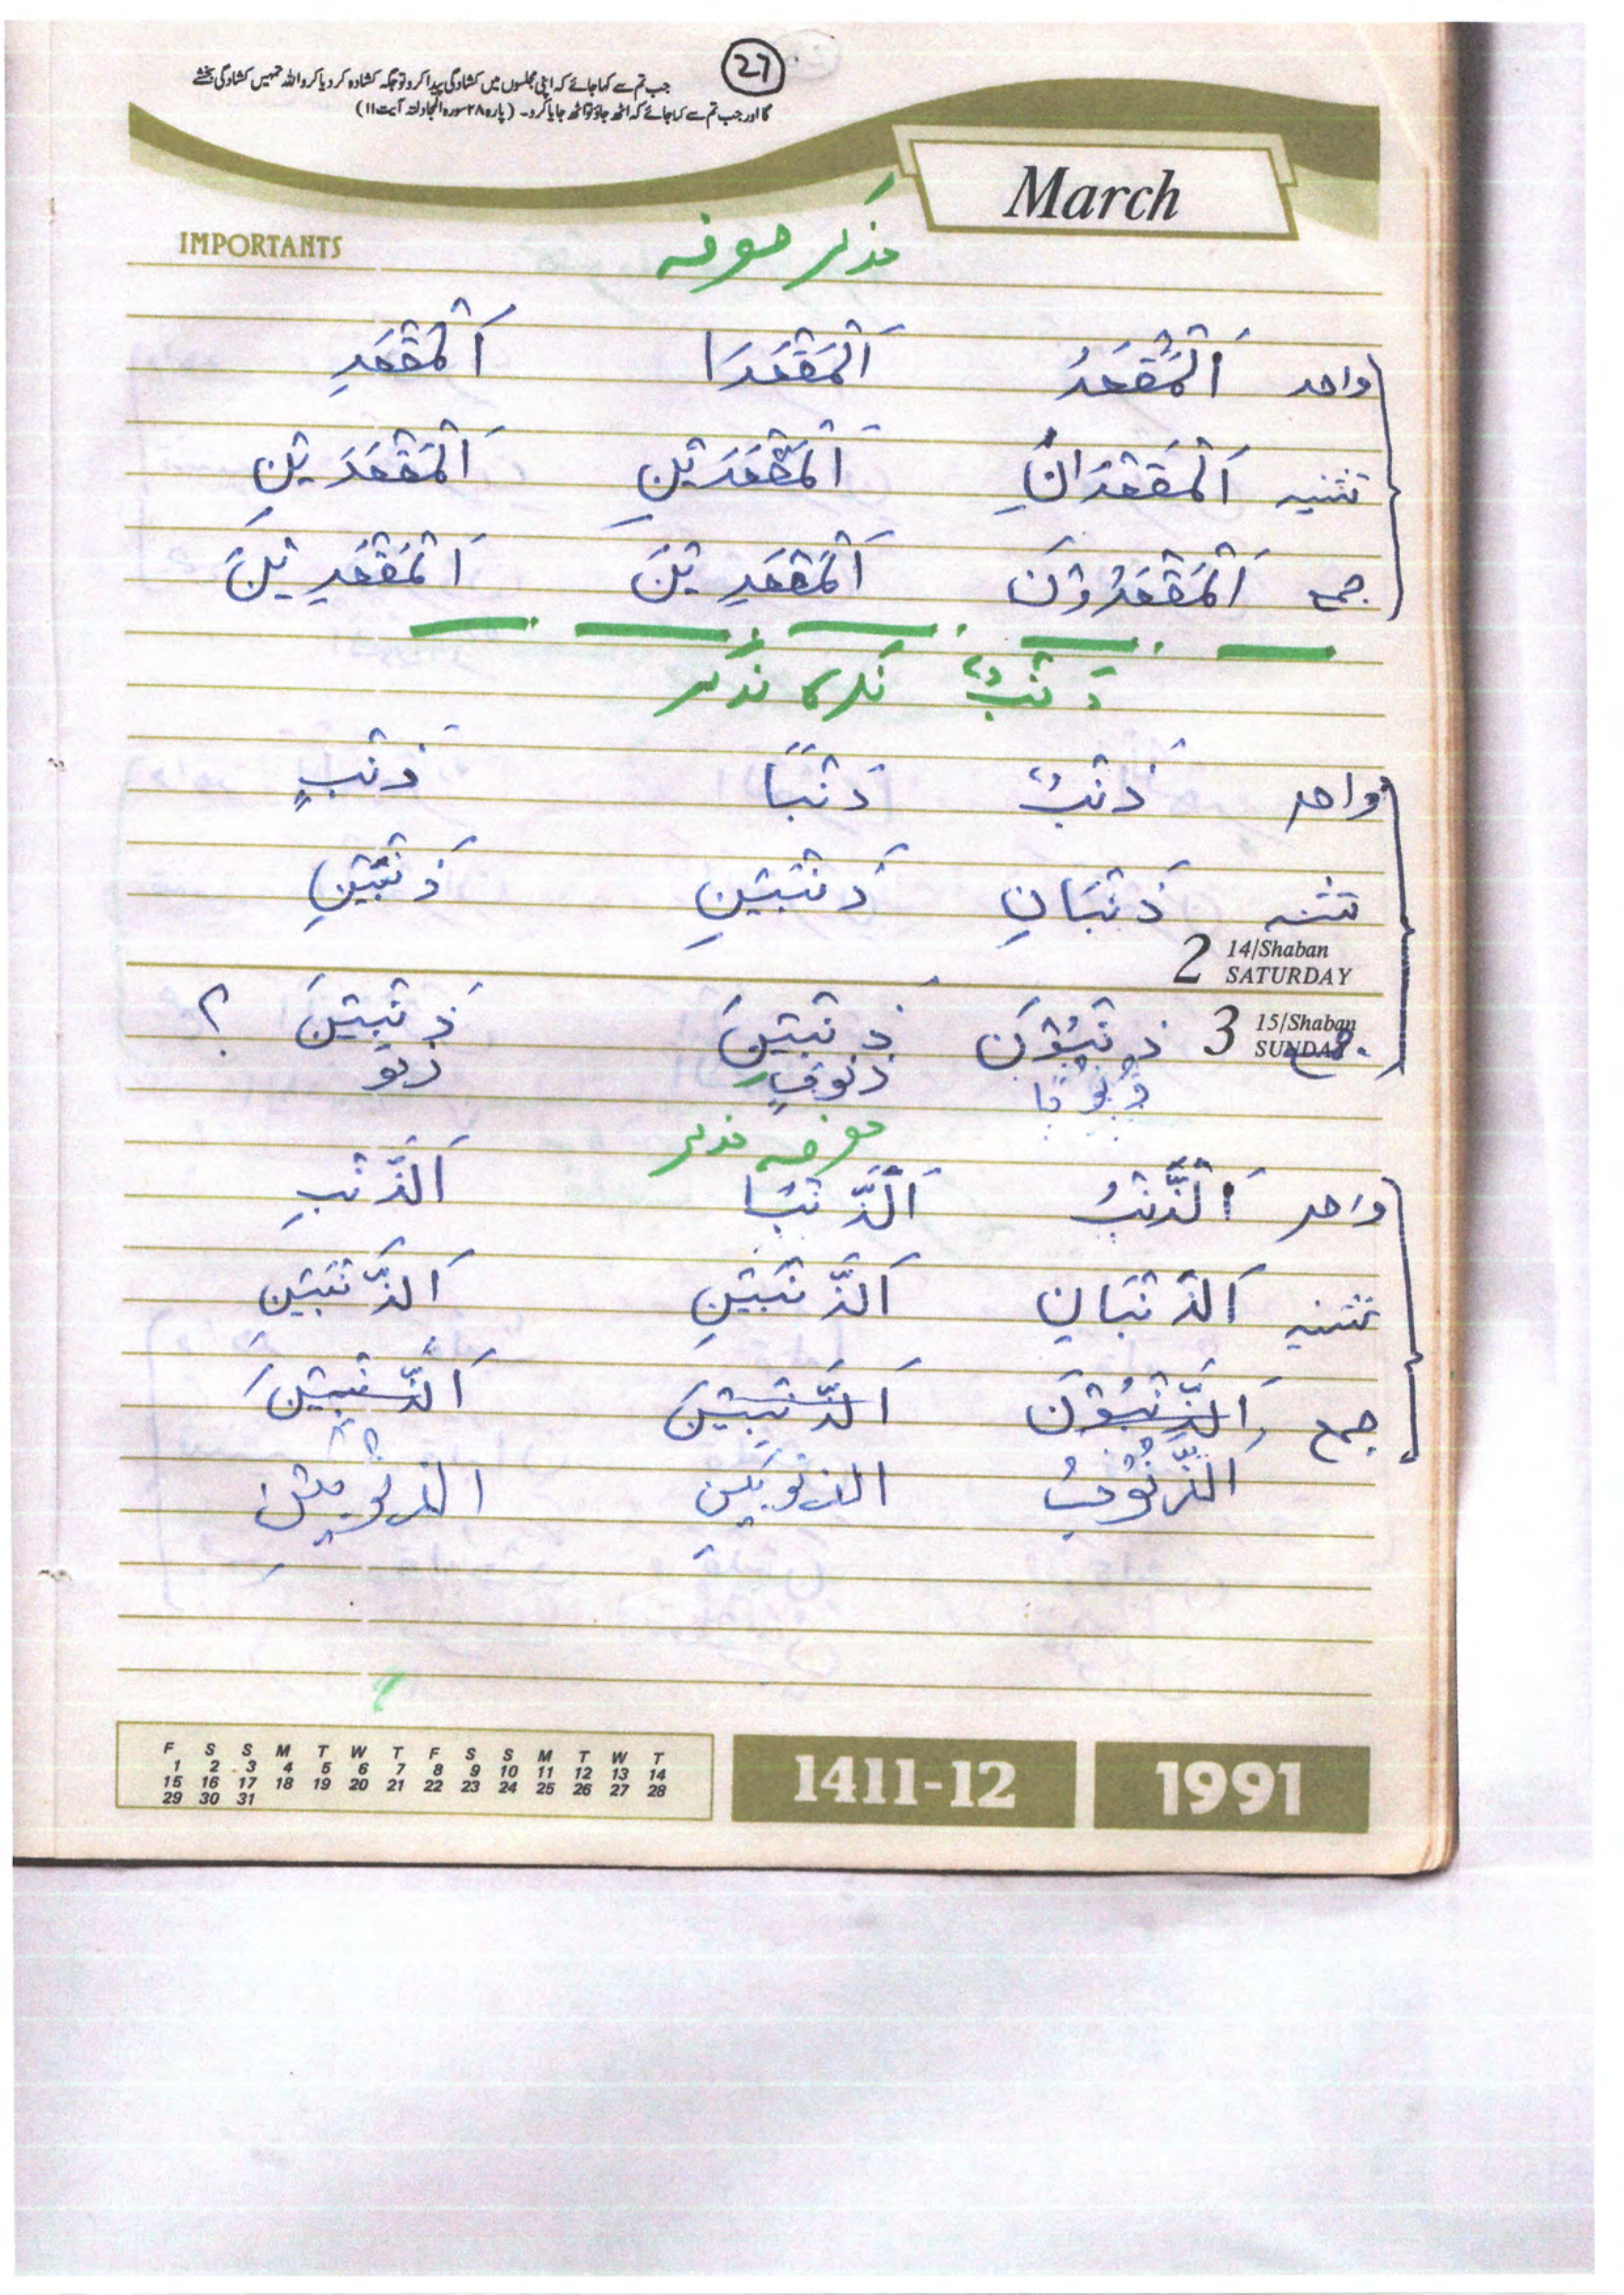 27
جب تم سے کہا جائے کہ اپنی مجلسوں میں کشادگی پیدا کرو تو جگہ کشادہ کر دیا کرو اللہ تمہیں کشادگی بخشے
گا اور جب تم سے کہا جائے کہ اٹھ جاؤ تو اٹھ جایا کرو۔ (پارہ ۲۸ سورہ المجادلۃ آیت ۱۱)
March
IMPORTANTS
مذکر معرفہ
واحد اَلْمَقْعَدُ اَلْمَقْعَدَا اَلْمَقْعَدِ
تثنیہ اَلْمَقْعَدَانِ اَلْمَقْعَدَیْنِ اَلْمَقْعَدَیْنِ
جمع اَلْمَقْعَدُوْنَ اَلْمَقْعَدِیْنَ اَلْمَقْعَدِیْنَ
ذَنْبٌ نکرہ مذکر
واحد ذَنْبٌ ذَنْبًا ذَنْبٍ
تثنیہ ذَنْبَانِ ذَنْبَیْنِ ذَنْبَیْنِ
2 14/Shaban SATURDAY
3 15/Shaban SUNDAY
جمع ذَنْبُوْنَ ذَنْبِیْنَ ذَنْبِیْنَ ؟
ذنو
معرفہ مذکر
واحد اَلذَّنْبُ اَلذَّنْبَا اَلذَّنْبِ
تثنیہ اَلذَّنْبَانِ اَلذَّنْبَیْنِ اَلذَّنْبَیْنِ
جمع اَلذَّنْبُوْنَ اَلذَّنْبِیْنَ اَلذَّنْبِیْنَ
اَلذُّنُوْبُ الذنوبَیْنِ الذنوبین
F S S M T W T F S S M T W T
1 2 3 4 5 6 7 8 9 10 11 12 13 14
15 16 17 18 19 20 21 22 23 24 25 26 27 28
29 30 31
1411-12 1991